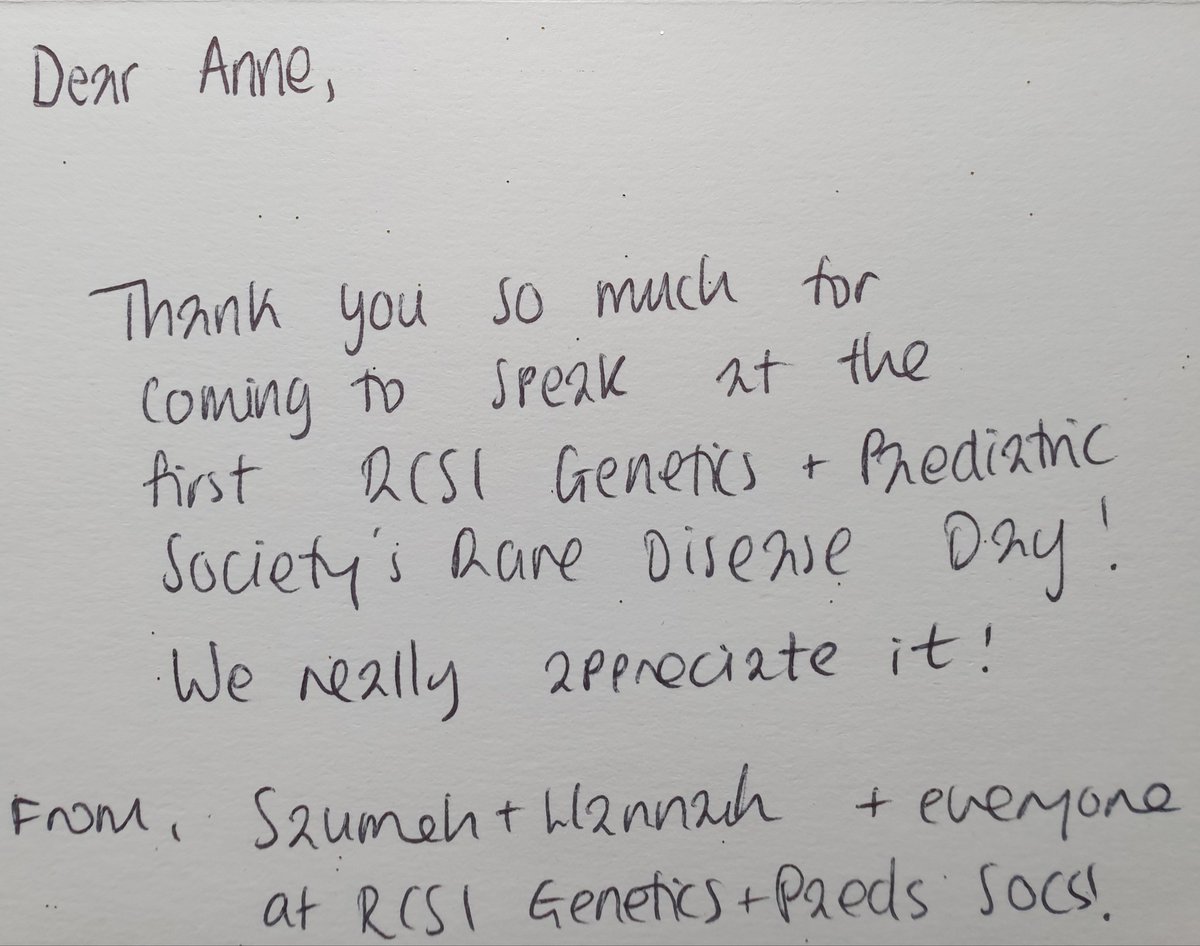 Dear Anne,
Thank you so much for
coming to speak at the
first RCSI Genetics + Paediatric
Society's Rare Disease Day!
We really appreciate it!
From, Saumeh + Hannah + everyone
at RCSI Genetics + Paeds Socs!